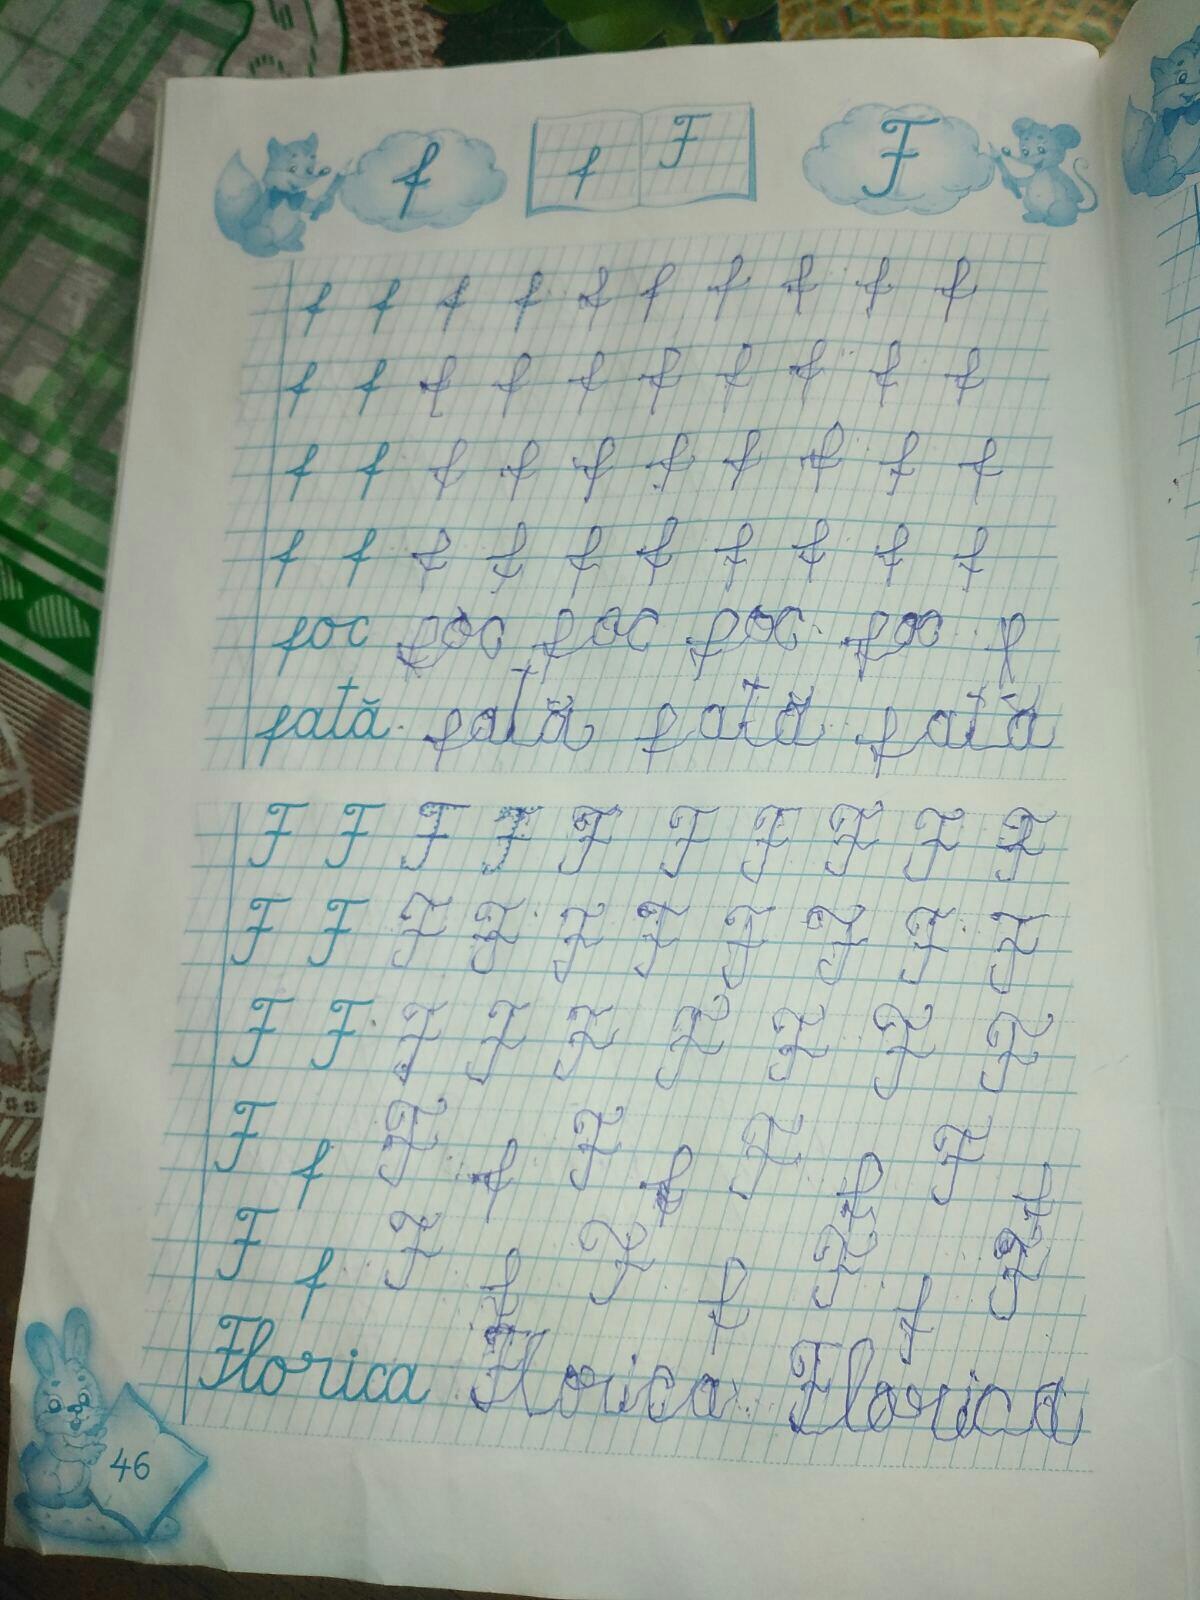 f f F F
f f f f f f f f f f
f f f f f f f f f f
f f f f f f f f f f
f f f f f f f f f f
foc foc foc foc foc f
fată fată fată fată
F F F F F F F F F F
F F F F F F F F F F
F F F F F F F F F
F f F f F f F f F f
F f F f F f F f F
Florica Florica Florica
46